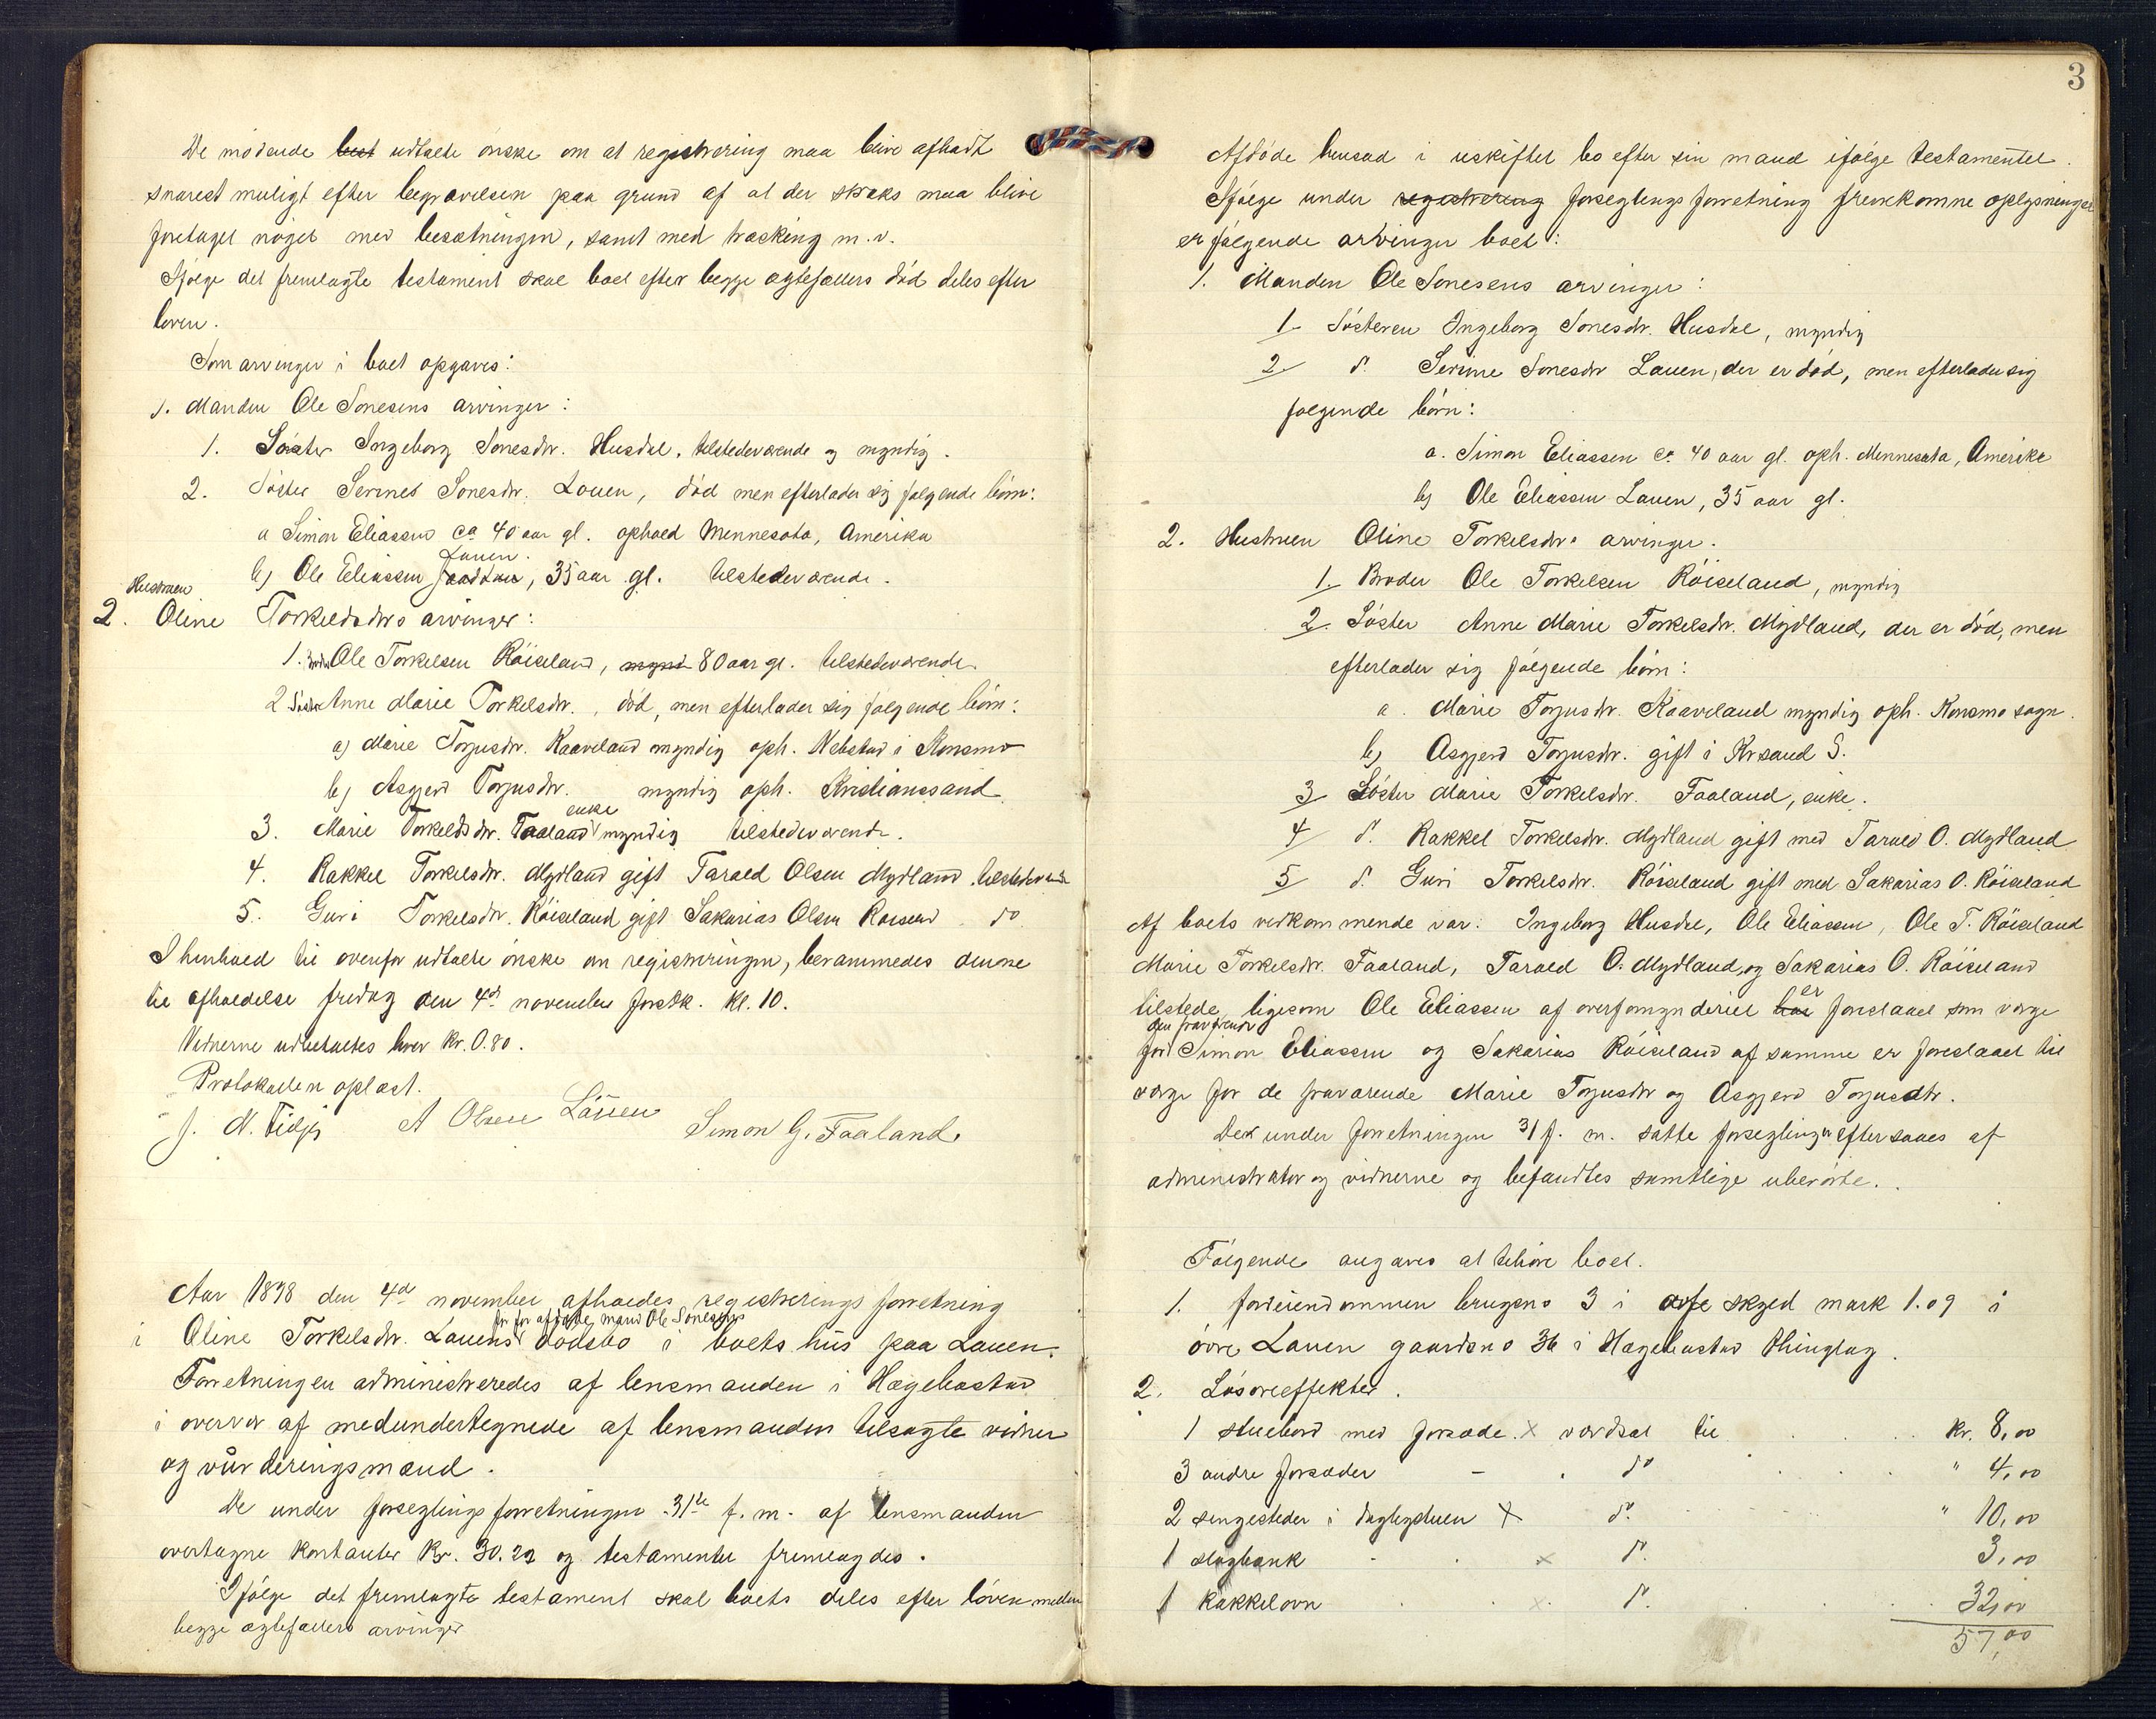 De mødende best udtalte ønske om at registrering maa blive afholdt
snarest muligt efter begravelsen paa grund af at der straks maa blive
foretaget noget med besætningen, samt med træsking m.v.
Ifølge det fremlagte testament skal boet efter begge ægtefællers død deles efter
loven.
Som arvinger i boet opgaves:
1. Manden Ole Sonesens arvinger:
1. Søster Ingeborg Sonesdtr. Husdal, tilstedeværende og myndig.
2. Søster Serines Sonesdtr. Louen, død men efterlader sig følgende børn:
a Simon Eliassen ca 40 aar gl. ophold Mennesota, Amerika
Lauen.
b) Ole Eliassen, 35 aar gl. tilstedeværende.
Hustruen
2. Oline Torkeldsdtrs arvinger:
1. Broder Ole Torkelsen Røiseland, mynd 80 aar gl. tilstedeværende
2 Søster Anne Marie Torkelsdtr., død, men efterlader sig følgende børn:
a) Marie Torjusdtr. Kaaveland myndig oph. Nebstad i Konsmo
b) Asgjerd Torjusdtr. myndig oph. Kristianssand
enke
3. Marie Torkeldsdtr. Faaland myndig tilstedeværende.
4. Rakkel Torkelsdtr. Mydland gift Tarald Olsen Mydland tilstedeværende
5. Guri Torkelsdtr. Røiseland gift Sakarias Olsen Røiseland do
I henhold til ovenfor udtalte ønske om registreringen, berammedes denne
til afholdelse fredag den 4de november førstk. kl. 10.
Vidnerne udbetaltes hver kr. 0.80.
Protokollen oplæst.
J. M. Tidjes A Olsen Låuen Simon G. Faaland.
Aar 1898 den 4de november afholdes registreringsforretning
før afdøde mand Ole Sonesens
i Oline Torkelsdtr. Lauens dødsbo i boets hus paa Lauen.
Forretningen administreredes af lensmanden i Hægebostad
i overvær af medundertegnede af lensmanden tilsagte vidner
og vurderingsmænd.
De under forseglingsforretningen 31te f. m. af lensmanden
overtagne kontanter Kr. 30.22 og testamentet fremlagdes.
Ifølge det fremlagte testament skal boets deles efter loven mellem
begge ægtefællers arvinger
3
Afdøde hensad i uskiftet bo efter sin mand ifølge testamentet.
Ifølge under registrering forseglingsforretning fremkomne oplysninger
er følgende arvinger i boet:
1. Manden Ole Sonesens arvinger:
1. Søsteren Ingeborg Sonesdtr. Husdal, myndig
2. do Serine Sonesdtr Lauen, der er død, men efterlader sig
følgende børn:
a. Simon Eliassen ca 40 aar gl. oph. Mennesota, Amerika
b) Ole Eliassen Lauen, 35 aar gl.
2. Hustruen Oline Torkelsdtrs arvinger.
1. Broder Ole Torkelsen Røiseland, myndig
2. Søster Anne Marie Torkelsdtr. Mydland, der er død, men
efterlader sig følgende børn:
a. Marie Torjusdtr. Kaaveland myndig oph. Konsmo sogn.
b) Asgjerd Torjusdtr. gift i Krsand S.
3 Søster Marie Torkelsdtr. Faaland, enke.
4 do Rakkel Torkelsdtr. Mydland gift med Tarald O. Mydland
5 do Guri Torkelsdtr. Røiseland gift med Sakarias O. Røiseland
Af boets vedkommende var: Ingeborg Husdal, Ole Eliassen, Ole T. Røiseland
Marie Torkelsdtr. Faaland, Tarald O. Mydland, og Sakarias O. Røiseland
er
tilstede, ligesom Ole Eliassen af overformynderiet har foreslaaet som værge
den fraværende
for Simon Eliassen og Sakarias Røiseland af samme er foreslaaet til
værge for de fraværende Marie Torjusdtr og Asgjerd Torjusdtr.
De under forretningen 31 f. m. satte forseglinger eftersaaes af
administrator og vidnerne og befandtes samtlige uberørte.
Følgende angaves at tilhøre boet.
1. Jordeiendommen brugsno 3 i skyld mark 1.09 i
øvre Lauen gaardsno 36 i Hægebostad thinglag.
2. Løsøreeffekter.
1 stuebord med forsæde x værdsat til kr. 8,00
3 andre forsæder - do " 4,00
2 sengesteder i daglystuen x do " 10,00
1 slagbænk x do 3,00
1 kakkelovn x do 32,00
57,00